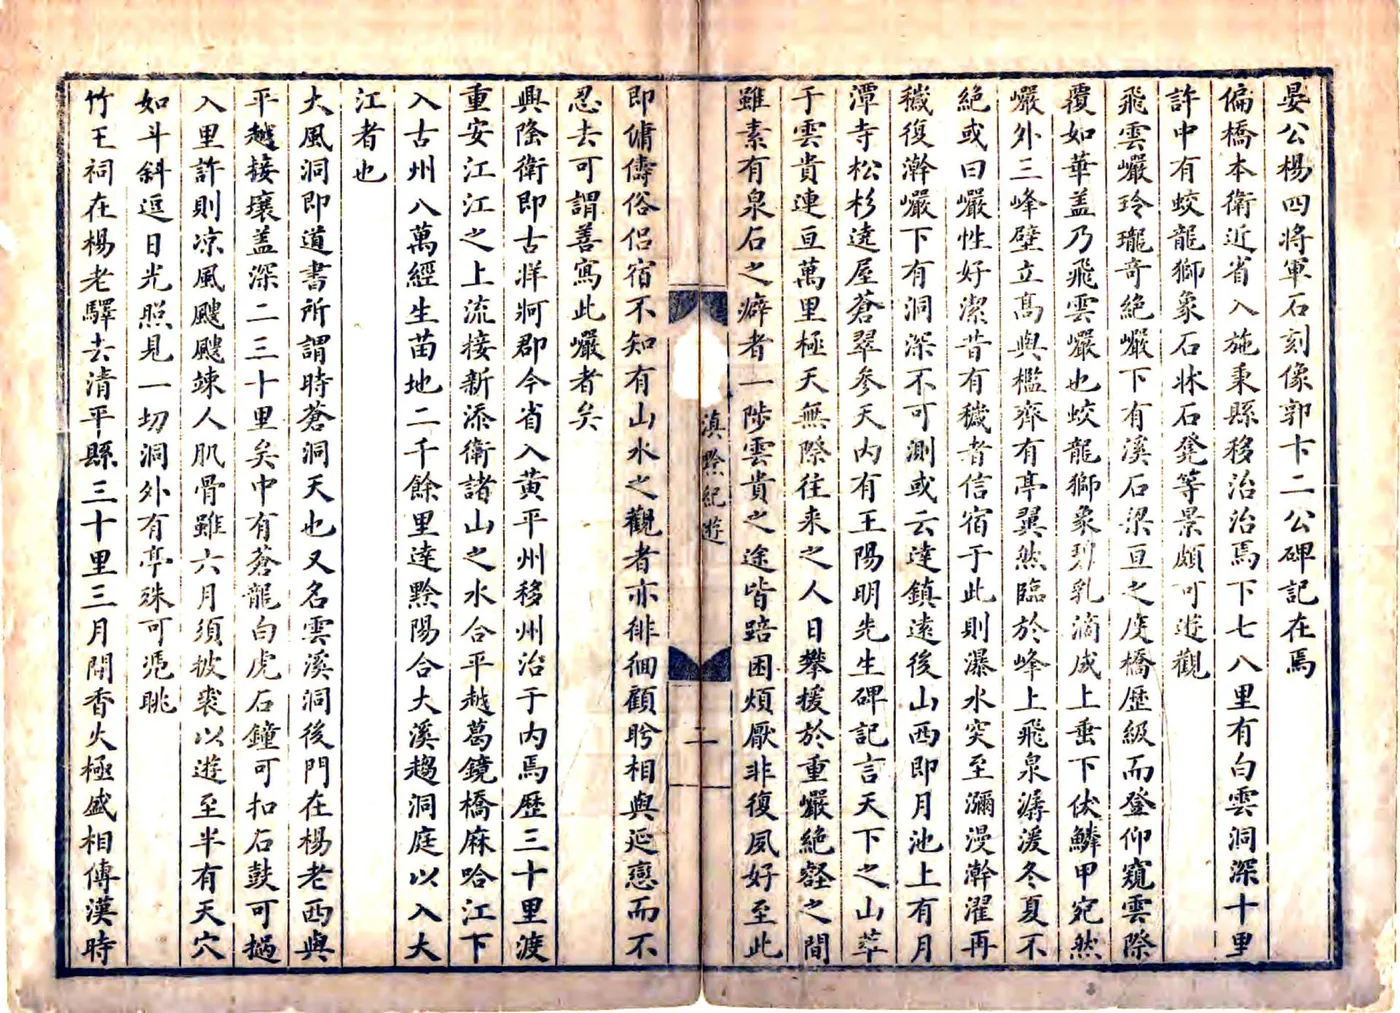 晏公楊四將軍石刻像郭卞二公碑記在焉
偏橋本衛近省入施秉縣移治治焉下七八里有白雲洞深十里
許中有蛟龍獅象石牀石凳等景頗可遊觀
飛雲巖玲瓏奇絕巖下有溪石梁亘之度橋歷級而登仰窺雲際
覆如華蓋乃飛雲巖也蛟龍獅象石乳滴成上垂下伏鱗甲宛然
巖外三峰壁立高與檻齊有亭翼然臨於峰上飛泉潺湲冬夏不
絕或曰巖性好潔昔有穢者信宿于此則瀑水突至瀰漫澣濯再
穢復澣巖下有洞深不可測或云達鎮遠後山西即月池上有月
潭寺松杉遶屋蒼翠參天內有王陽明先生碑記言天下之山萃
于雲貴連亘萬里極天無際往來之人日攀援於重巖絕壑之間
雖素有泉石之癖者一陟雲貴之途皆踣困煩厭非復夙好至此
滇黔紀遊
二
即傭儔俗侶宿不知有山水之觀者亦徘徊顧盻相與延戀而不
忍去可謂善寫此巖者矣
興隆衛即古牂牁郡今省入黃平州移州治于內焉歷三十里渡
重安江江之上流接新添衛諸山之水合平越葛鏡橋麻哈江下
入古州八萬經生苗地二千餘里達黔陽合大溪趨洞庭以入大
江者也
大風洞即道書所謂時蒼洞天也又名雲溪洞後門在楊老西與
平越接壤蓋深二三十里矣中有蒼龍白虎石鐘可扣石鼓可撾
入里許則凉風颼颼竦人肌骨雖六月須披裘以遊至半有天穴
如斗斜逗日光照見一切洞外有亭殊可凭眺
竹王祠在楊老驛去清平縣三十里三月開香火極盛相傳漢時